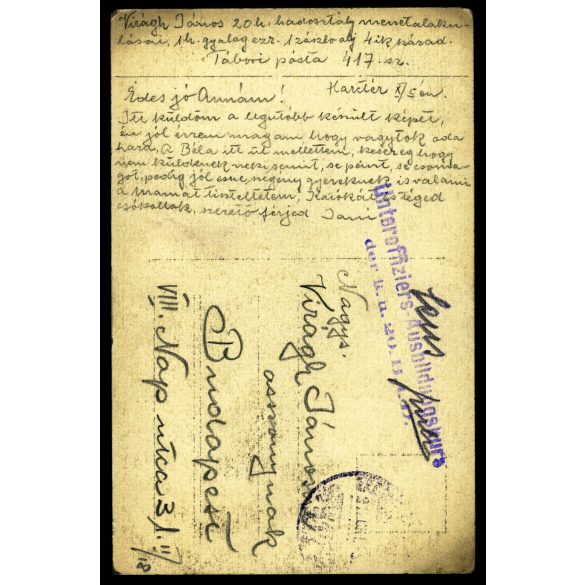 Virágh János 20 h. hadosztály menetalaku-
lásai, 1 h. gyalog ezr. 1 zászlóalj 4ik század.
Tábori posta 417. sz.
Harctér X/5én.
Édes jó Annám!
Itt küldöm a legutóbb készült képet,
én jól érzem magam hogy vagytok oda
haza, A Béla itt ül mellettem, kesereg hogy
nem küldenek neki semit, se pénzt, se csoma-
got, pedig jól esne szegény gyereknek is valami
a mamát tiszteltetem, Kariskát és téged
csókollak, szerető férjed Jani
Unteroffiziers-Ausbildungskurs
der k. u. 20.
Nagys.
Virágh János
asszonynak
Budapest
VIII. Nap utca 31. II/18